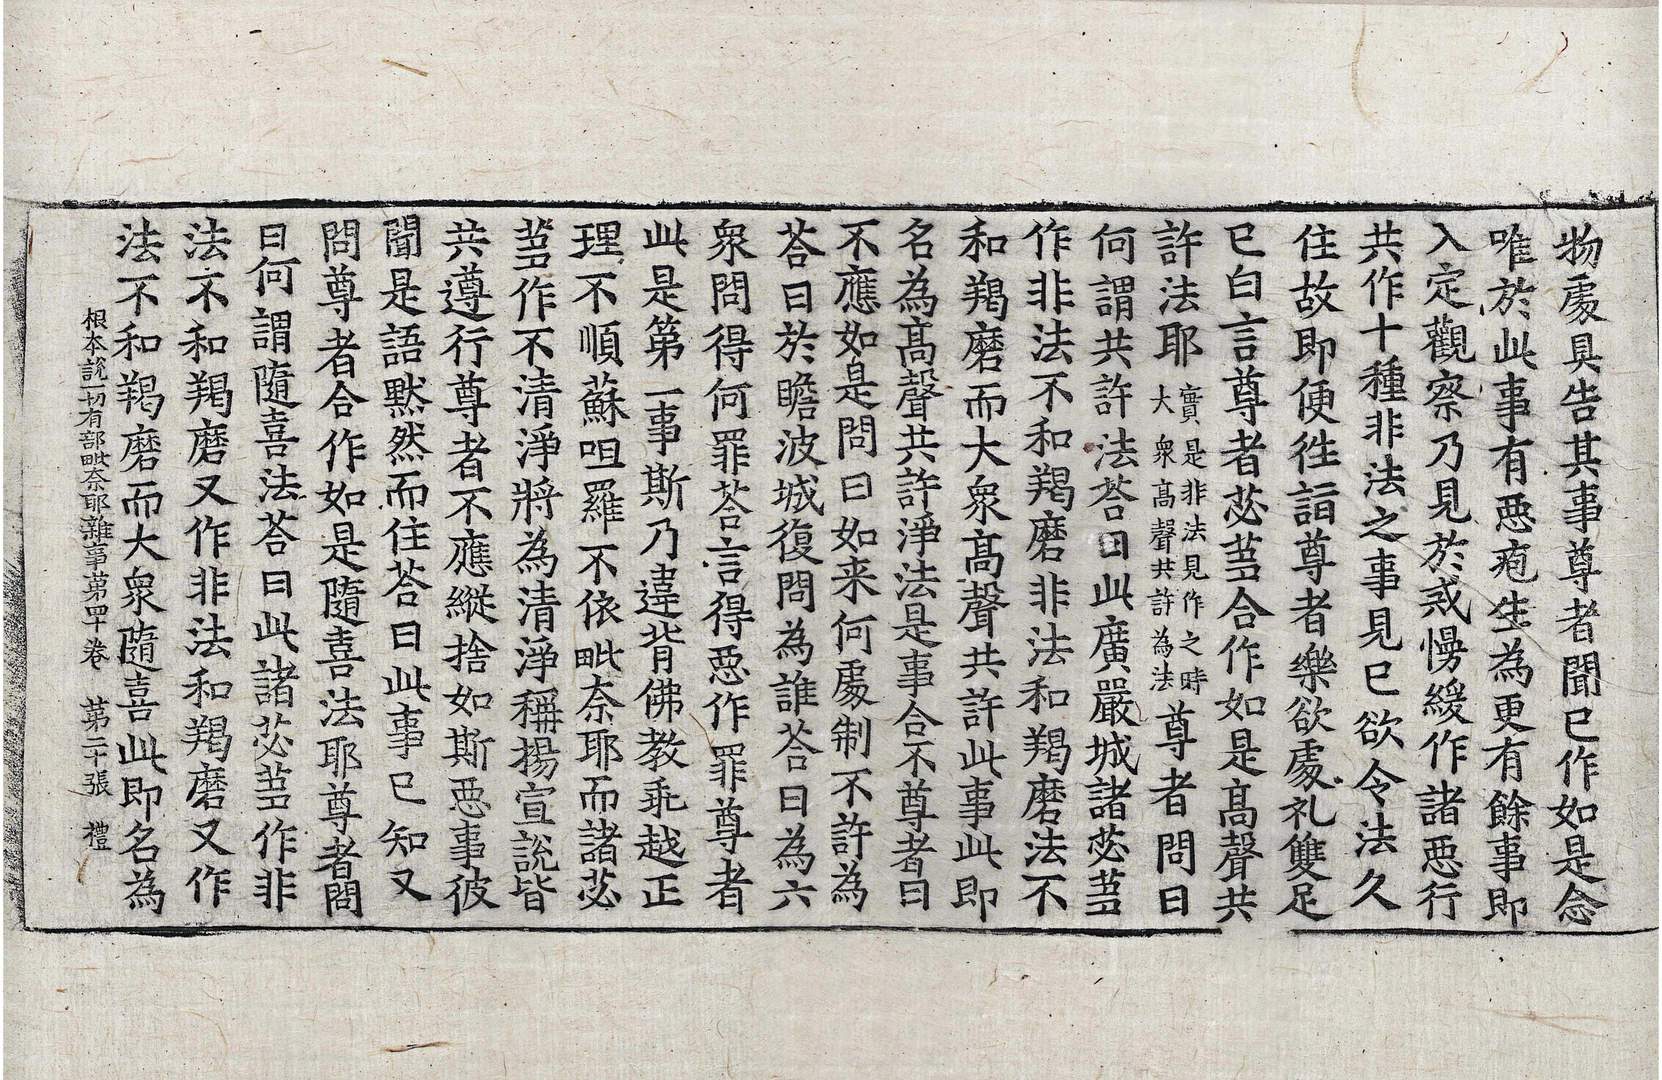 物處具告其事尊者聞已作如是念
唯於此事有悪疱生為更有餘事即
入定觀察乃見於戒慢緩作諸悪行
共作十種非法之事見已欲令法久
住故即便徃詣尊者樂欲處礼雙足
已白言尊者苾芻合作如是髙聲共
許法耶 實是非法見作之時大衆髙聲共許為法 尊者問曰
何謂共許法荅曰此廣嚴城諸苾芻
作非法不和羯磨非法和羯磨法不
和羯磨而大衆髙聲共許此事此即
名為髙聲共許淨法是事合不尊者曰
不應如是問曰如来何處制不許為
荅曰於瞻波城復問為誰荅曰為六
衆問得何罪荅言得悪作罪尊者
此是第一事斯乃違背佛教乖越正
理不順蘇呾羅不依毗奈耶而諸苾
芻作不清淨將為清淨稱揚宣說皆
共遵行尊者不應縱捨如斯悪事彼
聞是語黙然而住荅曰此事已知又
問尊者合作如是隨喜法耶尊者問
曰何謂隨喜法荅曰此諸苾芻作非
法不和羯磨又作非法和羯磨又作
法不和羯磨而大衆隨喜此即名為
根本說一切有部毗奈耶雜事苐四十卷 苐二十張 禮